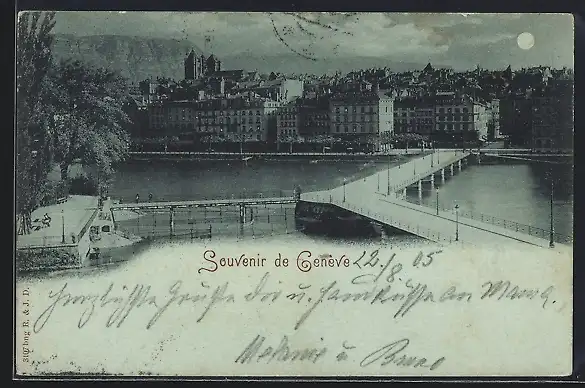 Souvenir de Genève
22./8. 05
Herzlichste Grüsse Dir u. Handküsse an Mama.
Melanie u. Bruno
3107bng R. & J. D.